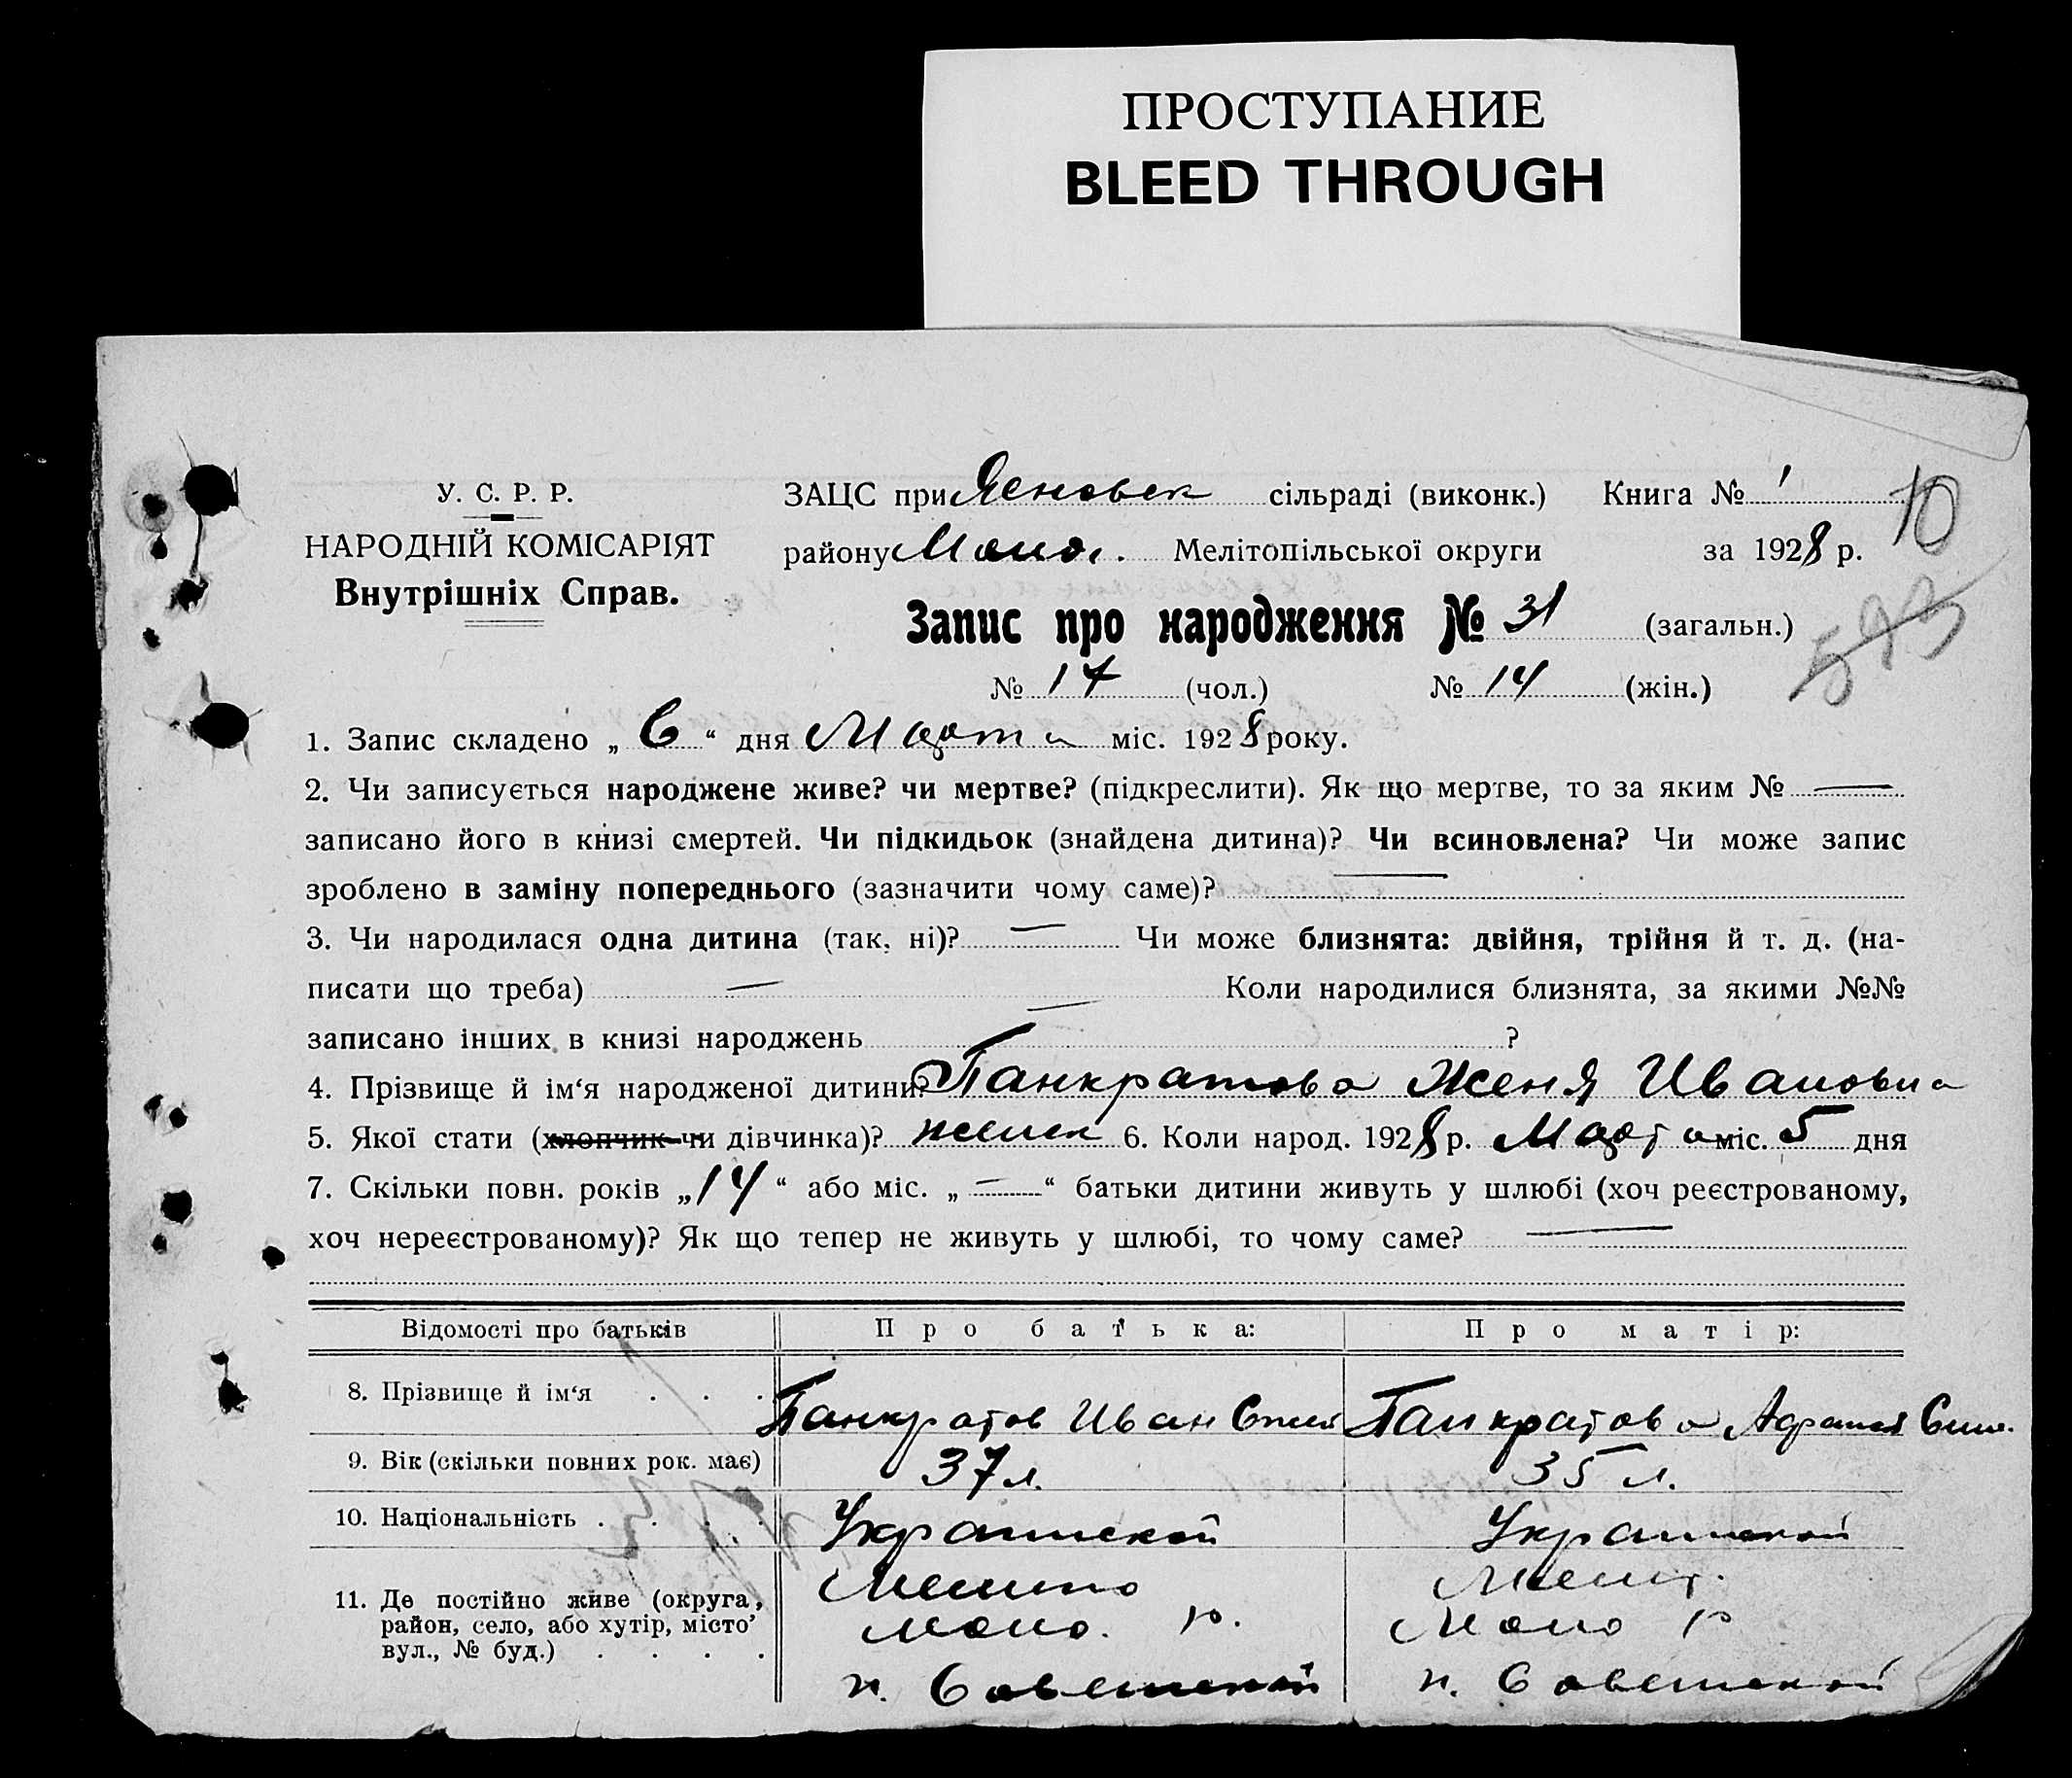 ПРОСТУПАНИЕ
BLEED THROUGH
У. С. Р. Р.
НАРОДНІЙ КОМІСАРІЯТ
Внутрішніх Справ.
ЗАЦС при сільраді (виконк.) Книга № 1
10
району Мелітопільської округи за 1928 р.
593
Запис про народження № 31 (загальн.)
№ 17 (чол.) № 14 (жін.)
1. Запис складено „ 6 “ дня Марта міс. 1928 року.
2. Чи записується народжене живе? чи мертве? (підкреслити). Як що мертве, то за яким № —
записано його в книзі смертей. Чи підкидьок (знайдена дитина)? Чи всиновлена? Чи може запис
зроблено в заміну попереднього (зазначити чому саме)? —
3. Чи народилася одна дитина (так, ні)? — Чи може близнята: двійня, трійня й т. д. (на-
писати що треба) — Коли народилися близнята, за якими №№
записано інших в книзі народжень — ?
4. Прізвище й ім‘я народженої дитини? Панкратова Женя Ивановна
5. Якої стати (хлопчик чи дівчинка)? женск 6. Коли народ. 1928 р. Марта міс. 5 дня
7. Скільки повн. років „ 14 “ або міс. „ — “ батьки дитини живуть у шлюбі (хоч реєстрованому,
хоч нереєстрованому)? Як що тепер не живуть у шлюбі, то чому саме? —
Відомості про батьків Про батька: Про матір:
8. Прізвище й ім‘я . . . Панкратов Иван Панкратова
9. Вік (скільки повних рок. має) 37 л. 35 л.
10. Національність . . . . Украинской Украинской
11. Де постійно живе (округа, район, село, або хутір, місто’ вул., № буд.) . . . .
р. р
п. Советский п. Советской